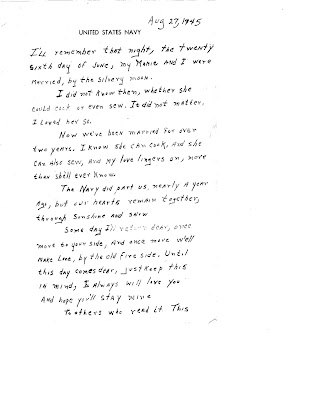 Aug 27, 1945
UNITED STATES NAVY
I'll remember that night, the twenty
sixth day of June, my Marie And I were
married, by the silvery moon.
I did not know then, whether she
could cook or even sew. It did not matter.
I loved her so.
Now we've been married for over
two years. I know she can cook, and she
can also sew, And my love lingers on, more
than she'll ever know.
The Navy did part us, nearly A year
Ago, but our hearts remain together,
through sunshine and snow
Some day I'll return dear, once
more to your side, And once more we'll
make Love, by the old fire side. Until
this day comes dear, just keep this
in mind, I always will love you
And hope you'll stay mine
To others who read it This